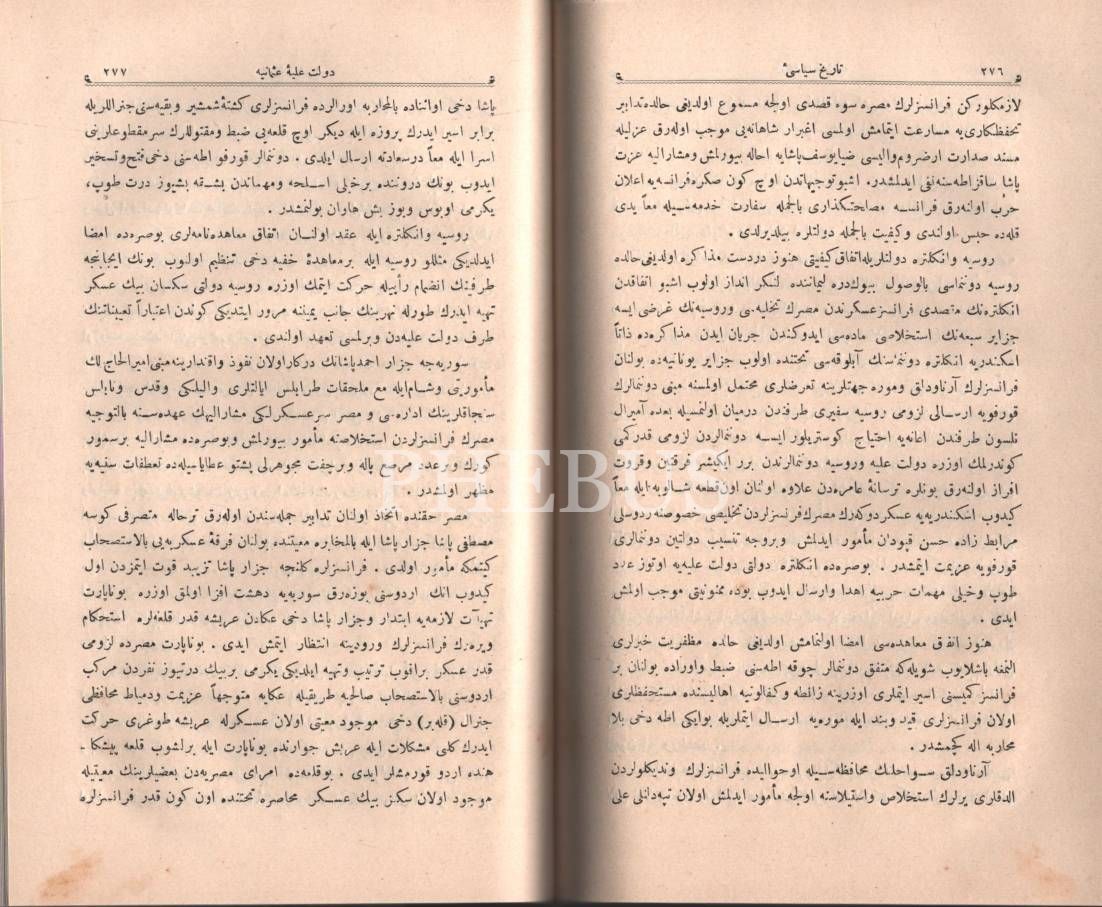 ٢٧٦
تاريخ سياسئ
لازمكلوركن فرانسزلرك مصره سوء قصدى اولجه مسموع اولديغى حالده تدابير
تحفظكارى‌يه مسارعت ايتمامش اولمسى اغبرار شاهانه‌يى موجب اوله‌رق عزليله
مسند صدارت ارضروم واليسى ضيا يوسف پاشايه احاله بيورلمش ومشاراليه عزت
پاشا ساقز اطه‌سنه نفى ايدلمشدر . اشبو توجيهاتدن اوچ كون صكره فرانسه‌يه اعلان
حرب اولنه‌رق فرانسه مصلحتگذارى بالجمله سفارت خدمه‌سيله معاً يدى
قله‌ده حبس اولندى وكيفيت بالجمله دولتلره بيلديرلدى .
روسيه وانكلتره دولتلريله اتفاق كيفيتى هنوز دردست مذاكره اولديغى حالده
روسيه دوننماسى بالوصول بيوك‌دره ليماننده لنكر انداز اولوب اشبو اتفاقدن
انكلتره‌نك مقصدى فرانسز عسكرندن مصرك تخليه‌سى وروسيه‌نك غرضى ايسه
جزاير سبعه‌نك استخلاصى ماده‌سى ايدوكندن جريان ايدن مذاكره‌ده ذاتاً
اسكندريه انكلتره دوننماسنك آبلوقه‌سى تحتنده اولوب جزاير يونانيه‌ده بولنان
فرانسزلرك آرناودلق وموره جهتلرينه تعرضلرى محتمل اولمسنه مبنى دوننمالرك
قورفويه ارسالى لزومى روسيه سفيرى طرفندن درميان اولنمسيله بعده آميرال
نلسون طرفندن اعانه‌يه احتياج كوستريلور ايسه دوننمالردن لزومى قدركمى
كوندرلمك اوزره دولت عليه وروسيه دوننمالرندن برر ايكيشر فرقتين وقروت
افراز اولنه‌رق بونلره ترسانهٔ عامره‌دن علاوه اولنان اون قطعه شالوپه ايله معاً
كيدوب اسكندريه‌يه عسكر دوكه‌رك مصرك فرانسزلردن تخليصى خصوصنه ردوسلى
مرابط زاده حسن قپودان مأمور ايدلمش وبروجه تنسيب دولتين دوننمالرى
قورفويه عزيمت ايتمشدر . بوصره‌ده انكلتره دولتى دولت عليه‌يه اوتوز عدد
طوپ وخيلى مهمات حربيه اهدا وارسال ايدوب بوده ممنونيتى موجب اولمش
ايدى .
هنوز اتفاق معاهده‌سى امضا اولنمامش اولديغى حالده مظفريت خبرلرى
النمغه باشلايوب شويله‌كه متفق دوننمالر چوقه اطه‌سنى ضبط واوراده بولنان بر
فرانسز كميسنى اسير ايتملرى اوزرينه زانطه وكفالونيه اهاليسنده مستحفظلرى
اولان فرانسزلرى قيد وبند ايله موره‌يه ارسال ايتملريله بوايكى اطه دخى بلا
محاربه اله كچمشدر .
آرناودلق سواحلنك محافظه‌سيله اوحواليده فرانسزلرك ونديكلولردن
الدقلرى يرلرك استخلاص واستيلاسنه اولجه مأمور ايدلمش اولان تپه‌دلنلى على
دولت عليهٔ عثمانيه
٢٧٧
پاشا دخى اواثناده بالمحاربه اورالرده فرانسزلرى كشتهٔ شمشير وبقيه‌سنى جنراللريله
برابر اسير ايدرك پروزه ايله ديكر اوچ قلعه‌يى ضبط ومقتوللرك سر مقطوعلرينى
اسرا ايله معاً درسعادته ارسال ايلدى . دوننمالر قورفو اطه‌سنى دخى فتح وتسخير
ايدوب بونك دروننده برخيلى اسلحه ومهماتدن بشقه بشيوز درت طوپ،
يكرمى اوبوس ويوز بش هاوان بولنمشدر .
روسيه وانكلتره ايله عقد اولنان اتفاق معاهده‌نامه‌لرى بوصره‌ده امضا
ايدلديكى مثللو روسيه ايله برمعاهدهٔ خفيه دخى تنظيم اولنوب بونك ايجابنجه
طرفينك انضمام رأييله حركت ايتمك اوزره روسيه دولتى سكسان بيك عسكر
تهيه ايدرك طورله نهرينك جانب يمينه مرور ايتديكى كوندن اعتباراً تعييناتنك
طرف دولت عليه‌دن ويرلمسى تعهد اولندى .
سوريه‌جه جزار احمد پاشانك دركار اولان نفوذ واقتدارينه مبنى اميرالحاج لك
مأموريتى وشام ايله مع ملحقات طرابلس ايالتلرى واليلكى وقدس ونابلس
سنجاقلرينك اداره‌سى و مصر سرعسكرلكى مشاراليهك عهده‌سنه بالتوجيه
مصرك فرانسزلردن استخلاصنه مأمور بيورلمش وبوصره‌ده مشاراليه برسمور
كورك وبرعدد مرصع پاله وبرچفت مجوهرلى پشتو عطاياسيله‌ده تعطفات سنيه‌يه
مظهر اولمشدر .
مصر حقنده اتخاذ اولنان تدابير جمله‌سندن اوله‌رق ترحاله متصرفى كوسه
مصطفى پاشا جزار پاشا ايله بالمخابره معيتنده بولنان فرقهٔ عسكريه‌يى بالاستصحاب
كيتمكه مأمور اولدى . فرانسزلره كلنجه جزار پاشا تزييد قوت ايتمزدن اول
كيدوب انك اردوسنى بوزه‌رق سوريه‌يه دهشت افزا اولمق اوزره بوناپارت
تهيآت لازمه‌يه ابتدار وجزار پاشا دخى عكادن عريشه قدر قلعه‌لره استحكام
ويره‌رك فرانسزلرك ورودينه انتظار ايتمش ايدى . بوناپارت مصرده لزومى
قدر عسكر براقوب ترتيب وتهيه ايلديكى يكرمى بربيك درتيوز نفردن مركب
اردوسنى بالاستصحاب صالحيه طريقيله عكايه متوجهاً عزيمت ودمياط محافظى
جنرال (قله‌بر) دخى موجود معيتى اولان عسكرله عريشه طوغرى حركت
ايدرك كلى مشكلات ايله عريش جوارنده بوناپارت ايله برلشوب قلعه پيشكا-
هنده اردو قورمشلر ايدى . بوقلعه‌ده امراى مصريه‌دن بعضيلرينك معيتيله
موجود اولان سكز بيك عسكر محاصره تحتنده اون كون قدر فرانسزلره
PHEBUS